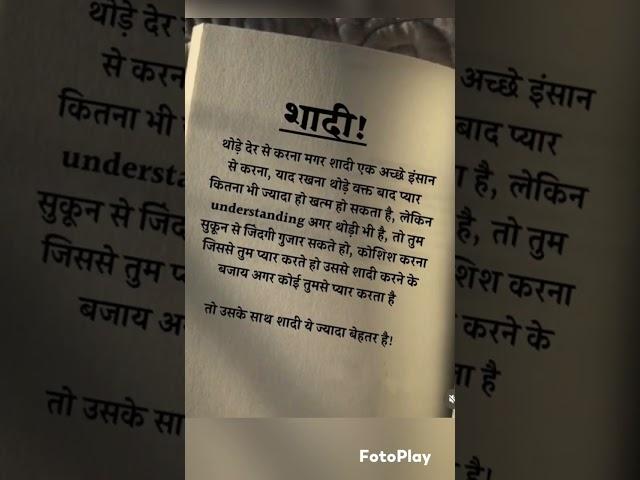 शादी!
थोड़े देर से करना मगर शादी एक अच्छे इंसान
से करना, याद रखना थोड़े वक्त बाद प्यार
कितना भी ज्यादा हो खत्म हो सकता है, लेकिन
understanding अगर थोड़ी भी है, तो तुम
सुकून से जिंदगी गुजार सकते हो, कोशिश करना
जिससे तुम प्यार करते हो उससे शादी करने के
बजाय अगर कोई तुमसे प्यार करता है
तो उसके साथ शादी ये ज्यादा बेहतर है!
FotoPlay